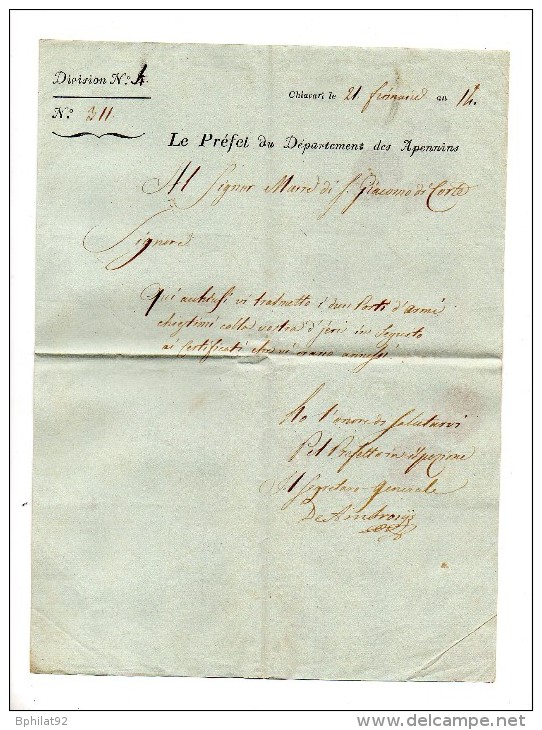 Division N.º 4.
Chiavari le 21 frimaire an 14.
N.º 311.
Le Préfet du Département des Apennins
Al Signor Maire di S. Giacomo di Corte
Signore
Qui acchiusi vi trasmetto i due Porti d'armi
chiestimi colla vostra d'jeri in seguito
ai Certificati che vi erano annessi
Ho l'onore di Salutarvi
Pel Prefetto in ispezione
Il Segretario Generale
De Ambrosiis
Bphilat92
www.delcampe.net